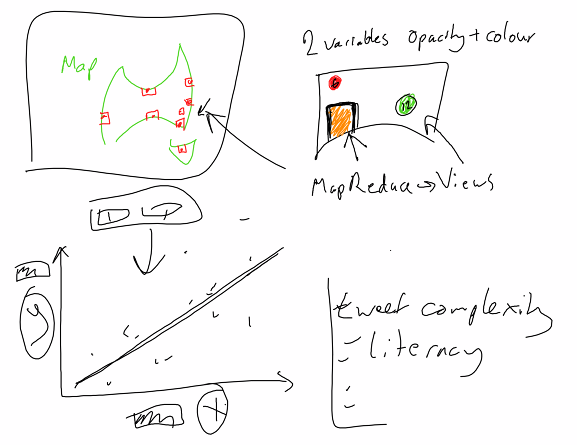 2 variables opacity + colour
Map
6
12
MapReduce → Views
y
x
tweet complexity
- literacy
-
-